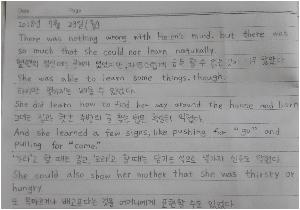 Date Page
2018년 9월 23일 (월)
There was nothing wrong with Helen's mind, but there was
so much that she could not learn naturally.
헬렌의 정신에는 문제가 없었지만, 자연스럽게 배울 수 없는 것이 너무 많았다.
She was able to learn some things, though.
하지만 몇가지는 배울 수 있었다.
She did learn how to find her way around the house and learn
그녀는 집과 주변의 길 찾는 법은 익혔다.
And she learned a few signs, like pushing for "go" and
pulling for "come."
"가라"고 할 때는 밀고, "오라"고 할 때는 당기는 식으로 몇가지 신호도 익혔다.
She could also show her mother that she was thirsty or
hungry.
또 목마르거나 배고프다는 것을 어머니에게 표현할 수도 있었다.